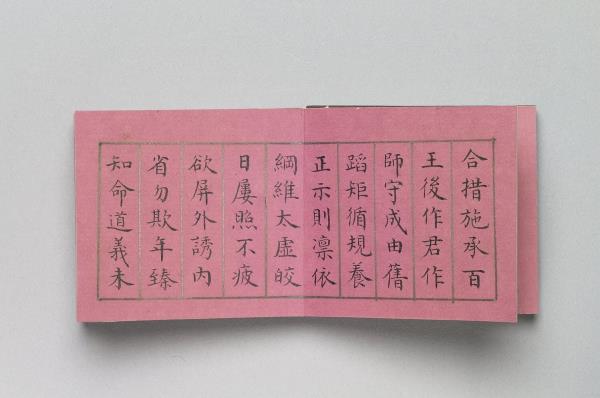 合措施承百
王後作君作
師守成由舊
蹈矩循規養
正示則凛依
綱維太虛皎
日屢照不疲
欲屏外誘內
省勿欺年臻
知命道義未